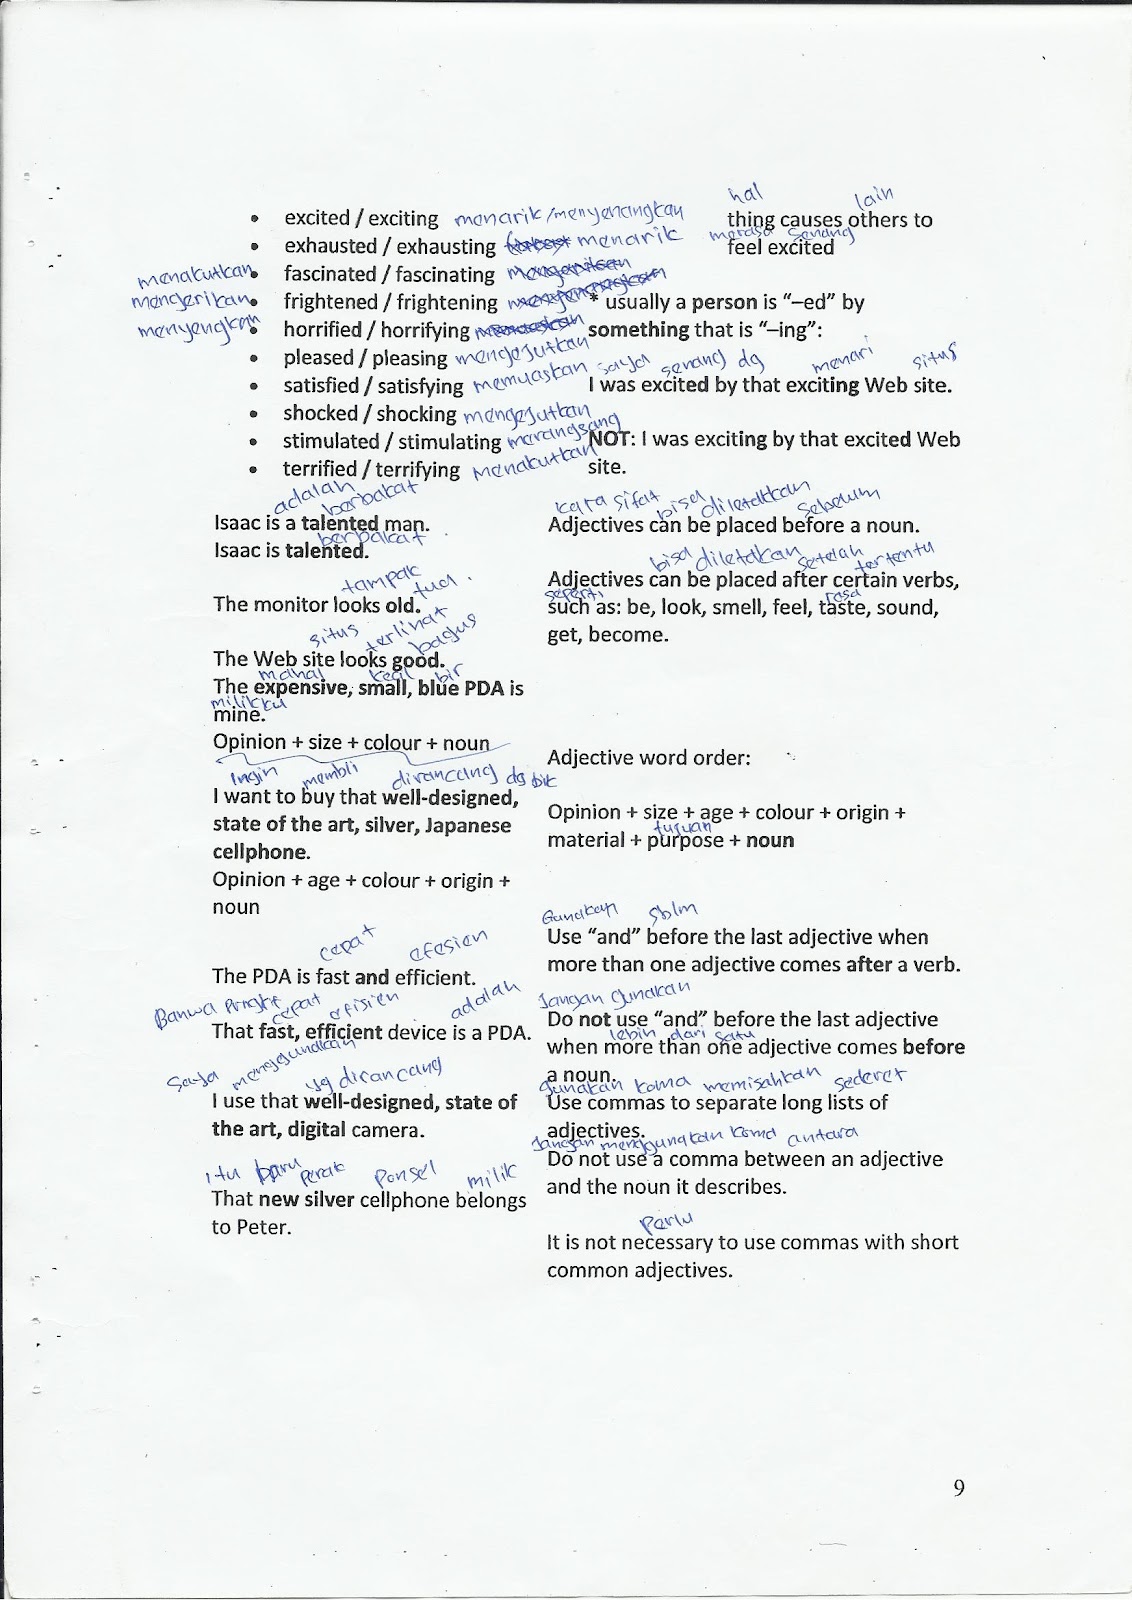 hal lain
• excited / exciting menarik/menyenangkan thing causes others to
merasa senang
• exhausted / exhausting menarik feel excited
menakutkan • fascinated / fascinating
mengerikan • frightened / frightening * usually a person is "–ed" by
• horrified / horrifying something that is "–ing":
• pleased / pleasing mengejutkan
saya senang dg menari situs
• satisfied / satisfying memuaskan I was excited by that exciting Web site.
• shocked / shocking mengejutkan
• stimulated / stimulating marangsang NOT: I was exciting by that excited Web
• terrified / terrifying menakutkan site.
adalah berbakat
Isaac is a talented man.
berbakat
Isaac is talented.
tampak tua.
The monitor looks old.
situs terlihat bagus
The Web site looks good.
mahal kecil bir
The expensive, small, blue PDA is
milikku
mine.
Opinion + size + colour + noun
Ingin membli dirancang dg
I want to buy that well-designed,
state of the art, silver, Japanese
cellphone.
Opinion + age + colour + origin +
noun
cepat efesien
The PDA is fast and efficient.
cepat efisien adalah
That fast, efficient device is a PDA.
Saya menggunakan yg dirancang
I use that well-designed, state of
the art, digital camera.
itu baru perak ponsel milik
That new silver cellphone belongs
to Peter.
kata sifat bisa diletakkan sebelum
Adjectives can be placed before a noun.
bisa diletakan setelah tertentu
Adjectives can be placed after certain verbs,
seperti rasa
such as: be, look, smell, feel, taste, sound,
get, become.
Adjective word order:
Opinion + size + age + colour + origin +
tujuan
material + purpose + noun
Gunakan sblm
Use "and" before the last adjective when
more than one adjective comes after a verb.
Jangan gunakan
Do not use "and" before the last adjective
lebih dari satu
when more than one adjective comes before
a noun.
gunakan koma memisahkan sederet
Use commas to separate long lists of
adjectives.
Jangan menggunakan koma antara
Do not use a comma between an adjective
and the noun it describes.
perlu
It is not necessary to use commas with short
common adjectives.
9